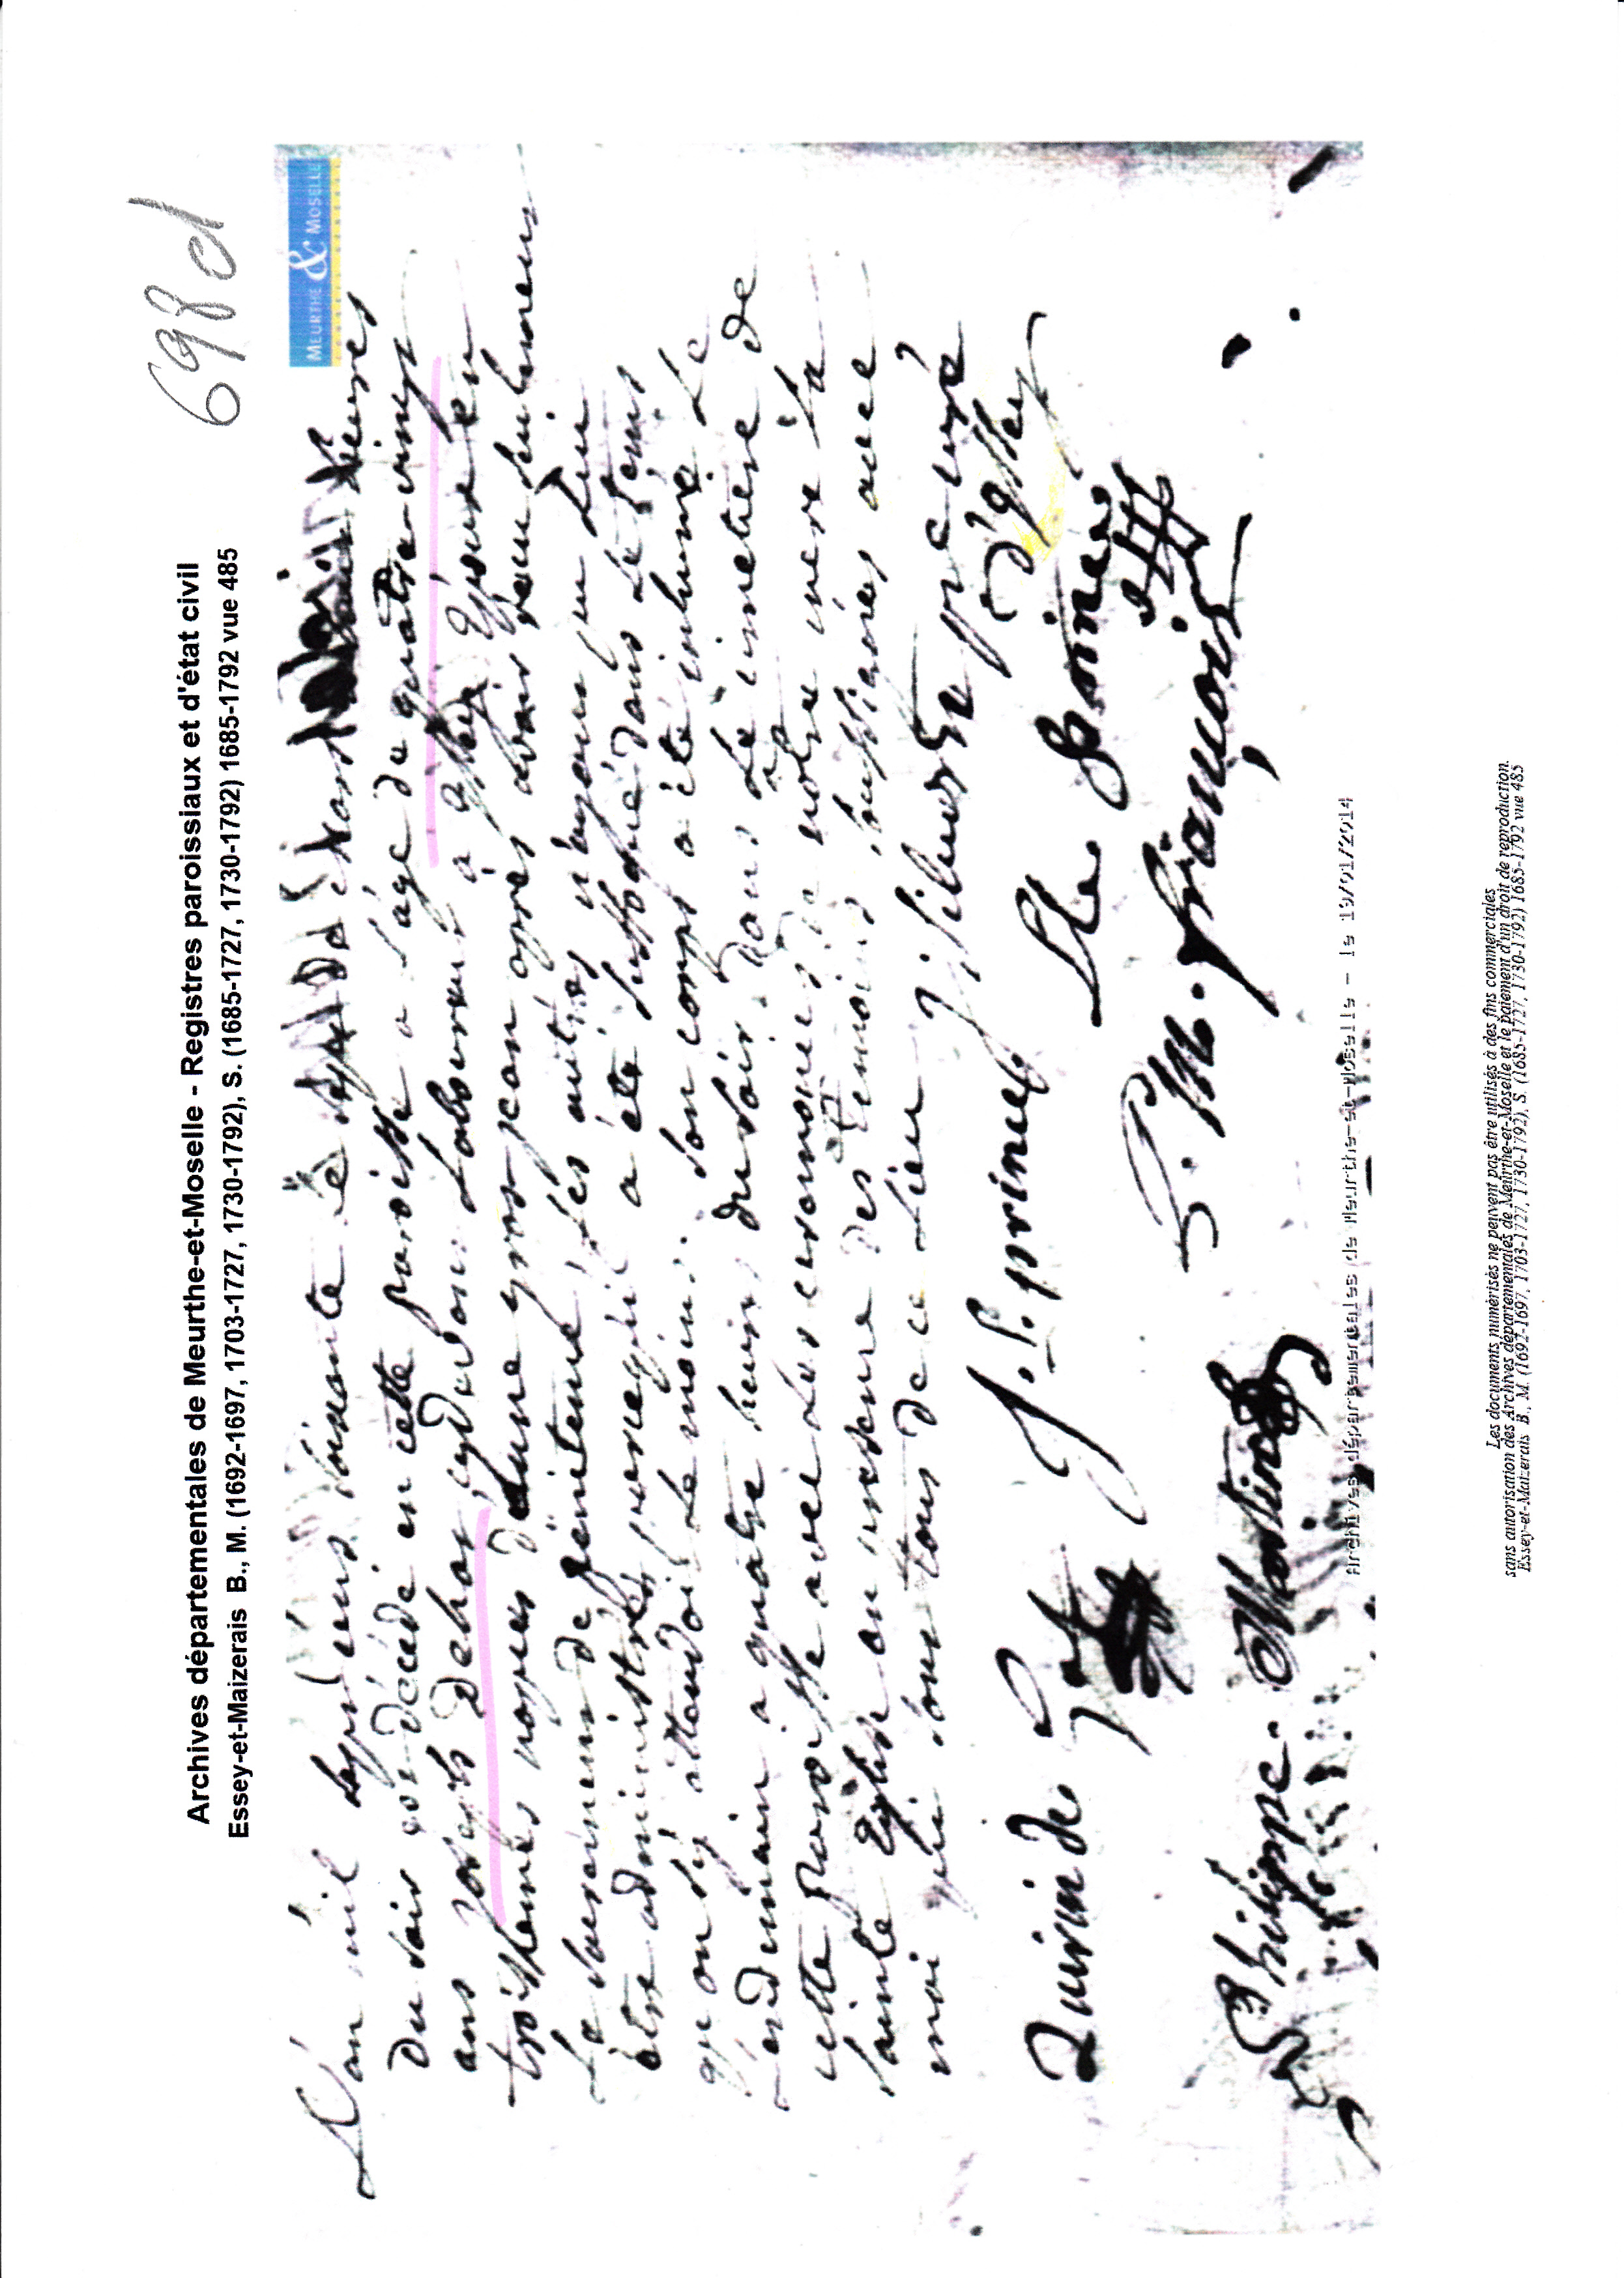 698d
Archives départementales de Meurthe-et-Moselle - Registres paroissiaux et d'état civil
Essey-et-Maizerais B., M. (1692-1697, 1703-1727, 1730-1792), S. (1685-1727, 1730-1792) 1685-1792 vue 485
MEURTHE & MOSELLE
L'an mil sept cens soixante le
du soir est décédé en cette paroisse a l'age de quatre-vingt
ans joseph Dehan, laboureur a Essey, Epoux en
troisièmes nopces d'anne grosjean après avoir reçu seulement
le sacrement de pénitence, les autres n'ayans pu lui
être administrés parcequ'il a été suffoqué dans le tems
qu'on s'y attendoit le moins. son corps a été inhumé le
lendemain a quatre heures du soir dans le cimetiere de
cette paroisse avec les ceremonies de notre mere la
sainte Eglise en presence des temoins soussignés avec
moi qui sont tous de ce lieu J. Siburt pretre curé
d'Essey
J. P. prince
P. M. françois
Philippe Martin
Archives départementales de Meurthe-et-Moselle - le 19/01/2014
Les documents numérisés ne peuvent pas être utilisés à des fins commerciales
sans autorisation des Archives départementales de Meurthe-et-Moselle et le paiement d'un droit de reproduction.
Essey-et-Maizerais B., M. (1692-1697, 1703-1727, 1730-1792), S. (1685-1727, 1730-1792) 1685-1792 vue 485